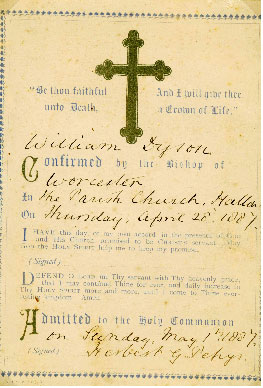 "Be thou faithful And I will give thee
unto Death, a Crown of Life."
William Dyson
Confirmed by the Bishop of
Worcester
In the Parish Church, Hallow
On Thursday, April 28, 1887.
I HAVE this day, of my own accord, in the presence of God
and His Church promised to be Christ's servant. May
the Holy Spirit help me to keep my promise.
(Signed)
DEFEND O Lord, me Thy servant with Thy heavenly grace,
that I may continue Thine for ever; and daily increase in
Thy Holy Spirit more and more, until I come to Thy ever-
lasting kingdom. Amen.
Admitted to the Holy Communion
on Sunday, May 1st 1887.
(Signed) Herbert G.